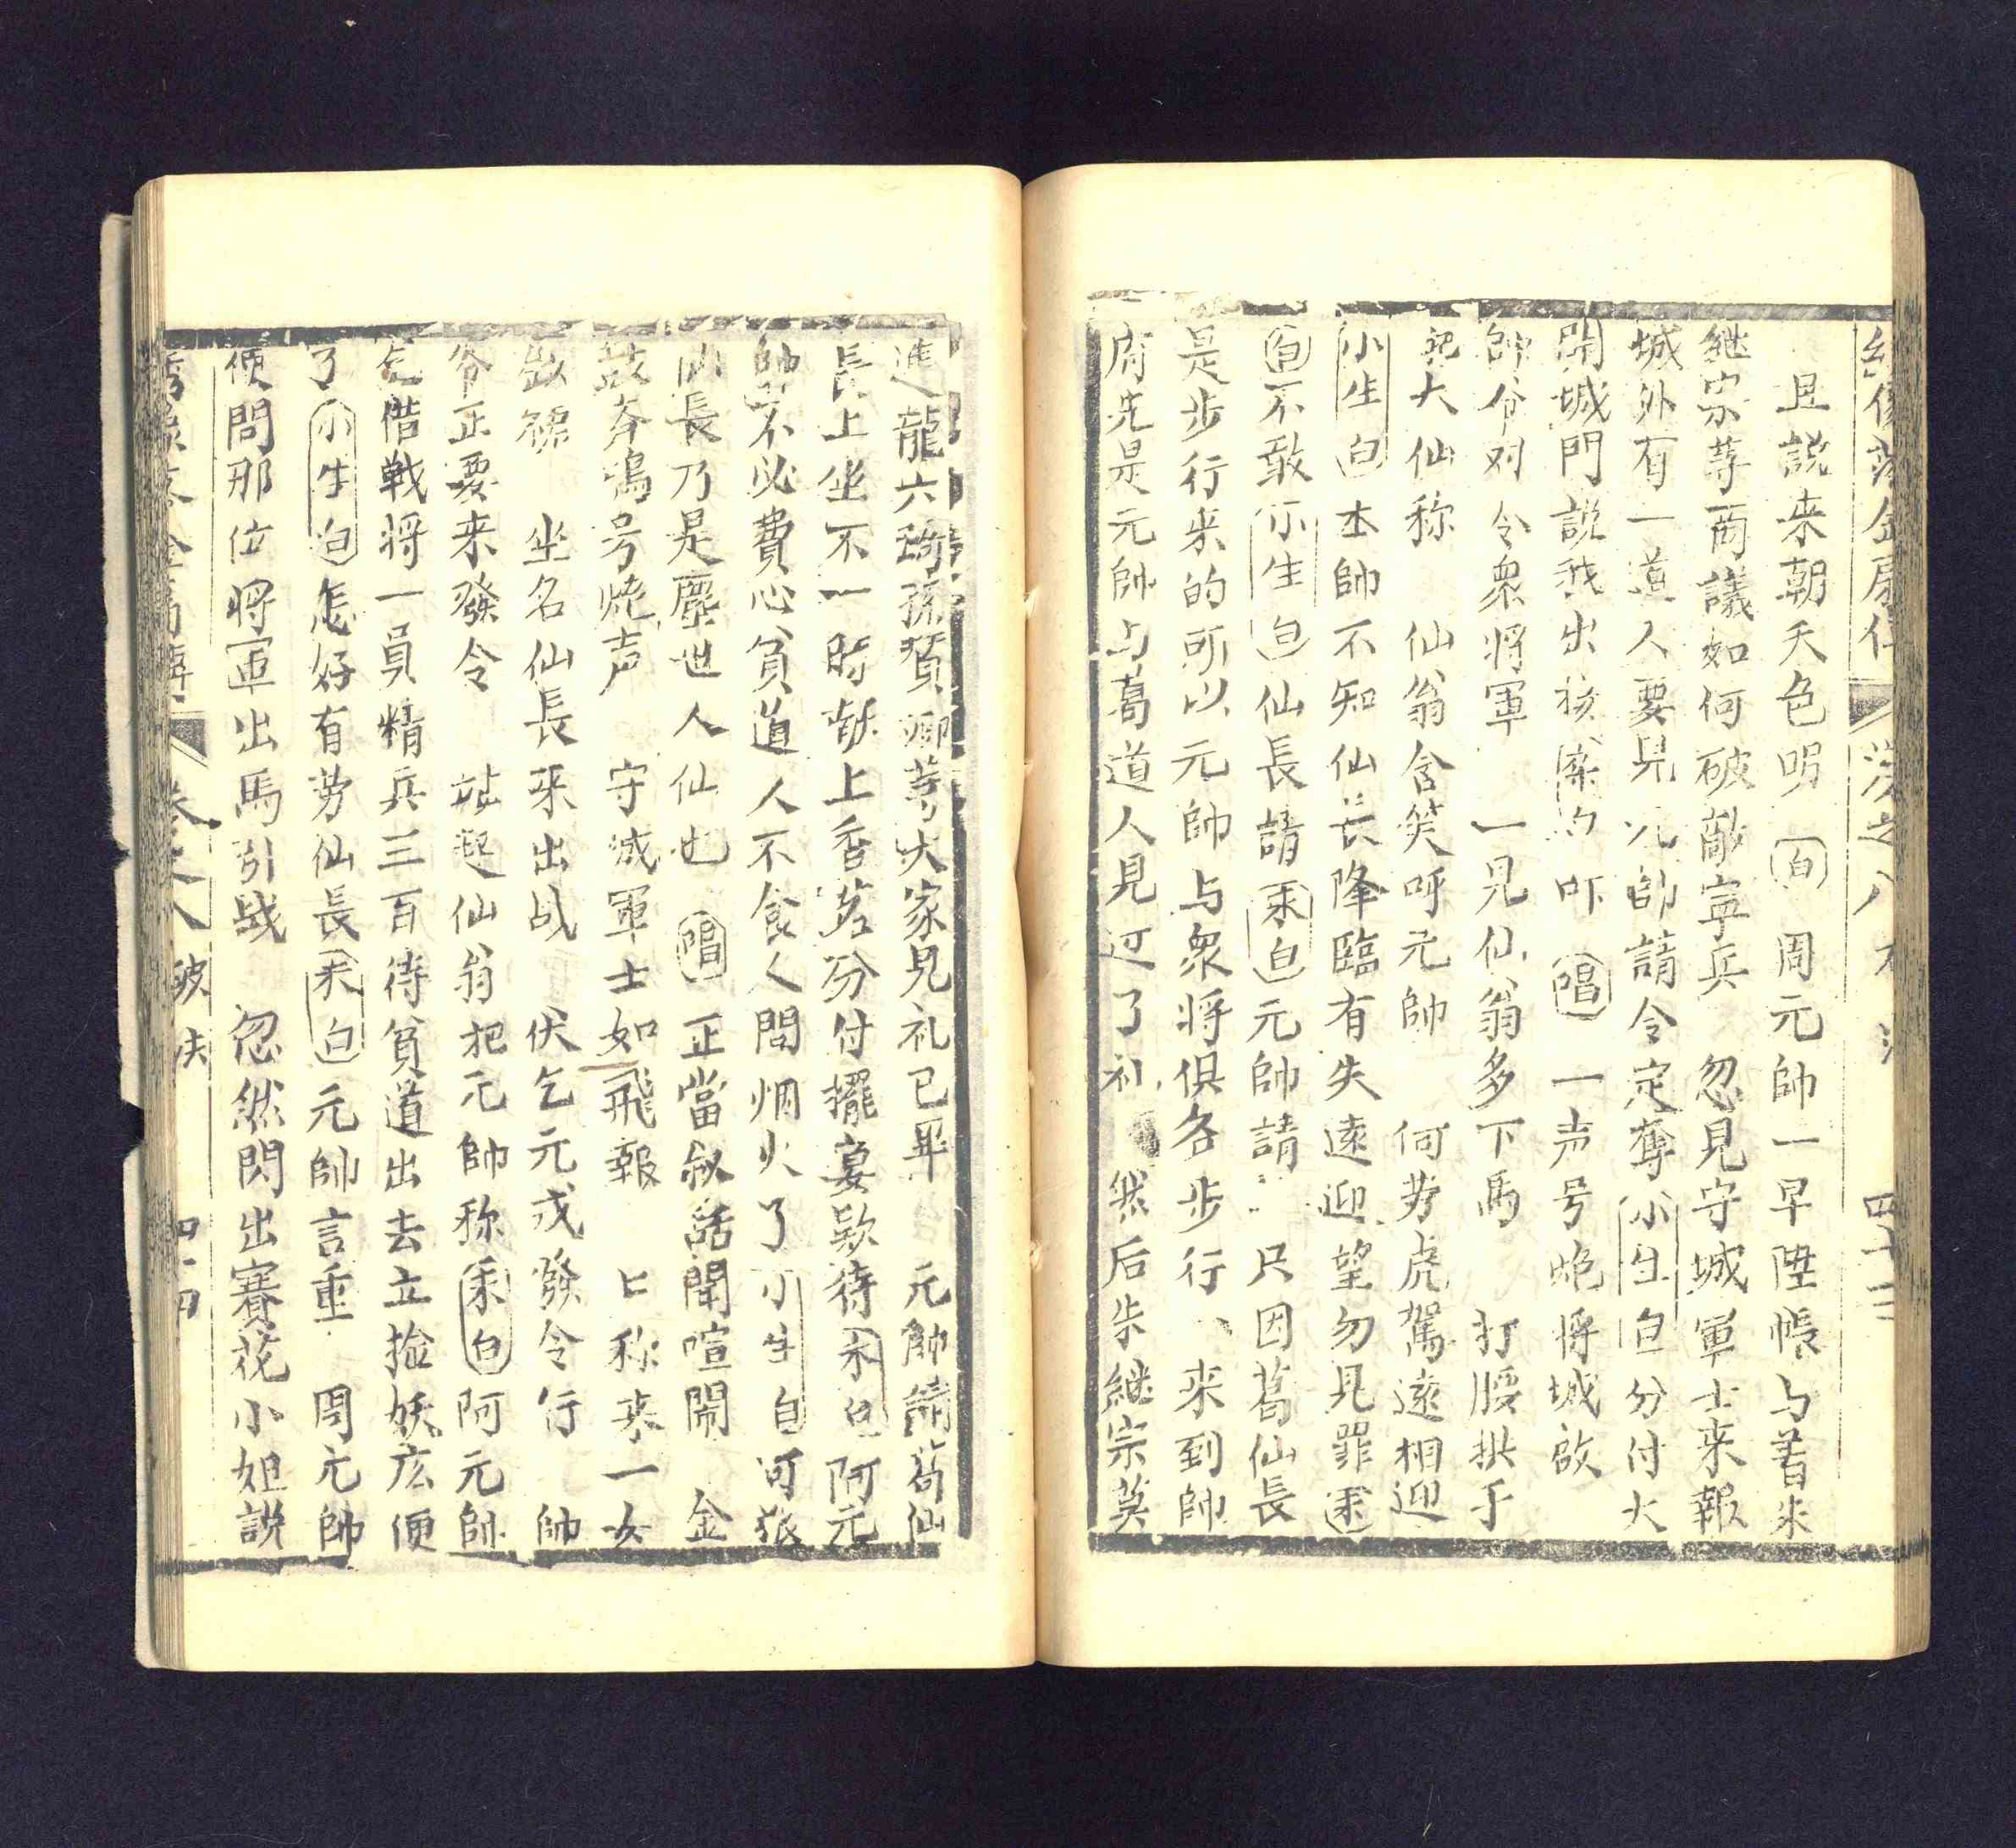 且說来朝天色明 白 周元帥一早陞帳与着朱
継宗等商議如何破敵寧兵 忽見守城軍士来報
城外有一道人要見元帥請令定奪小生白分付大
開城門說我出接 吓 唱 一声号炮将城啟
帥爷对令衆将軍 一見仙翁多下馬 打腰拱手
大仙称 仙翁含笑呼元帥 何劳虎駕遠相迎
小生白本帥不知仙长降臨有失遠迎望勿見罪末
白不敢小生白仙長請末白元帥請 只因葛仙長
是步行来的所以元帥与衆将俱各步行 来到帥
府先是元帥与葛道人見过了礼 然后朱継宗莫
進龍六 孫 卿等大家見礼已畢 元帥請葛仙
長上坐不一時献上香茗分付擺宴欵待末白阿元
帥不必費心貧道人不食人間烟火了小生白
仙長乃是塵世人仙也 唱 正當敘話聞喧鬧 金
鼓齐鳴号炮声 守城軍士如飛報 口称来一女
坐名仙長来出战 伏乞元戎發令行 帥
爷正要来發令 站起仙翁把元帥称末白阿元帥
乞借戦将一員精兵三百待貧道出去立擒妖 便
了小生白怎好有劳仙長末白元帥言重 周元帥
便問那位将軍出馬引戰 忽然閃出賽花小姐説
卷之八 破法 四十四